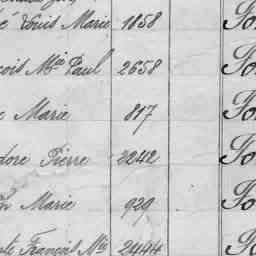 Louis Marie 1858 To
ois Mie Paul 2658 To
Marie 817 To
dore Pierre 2242 To
Marie 929 To
François Mie 2444